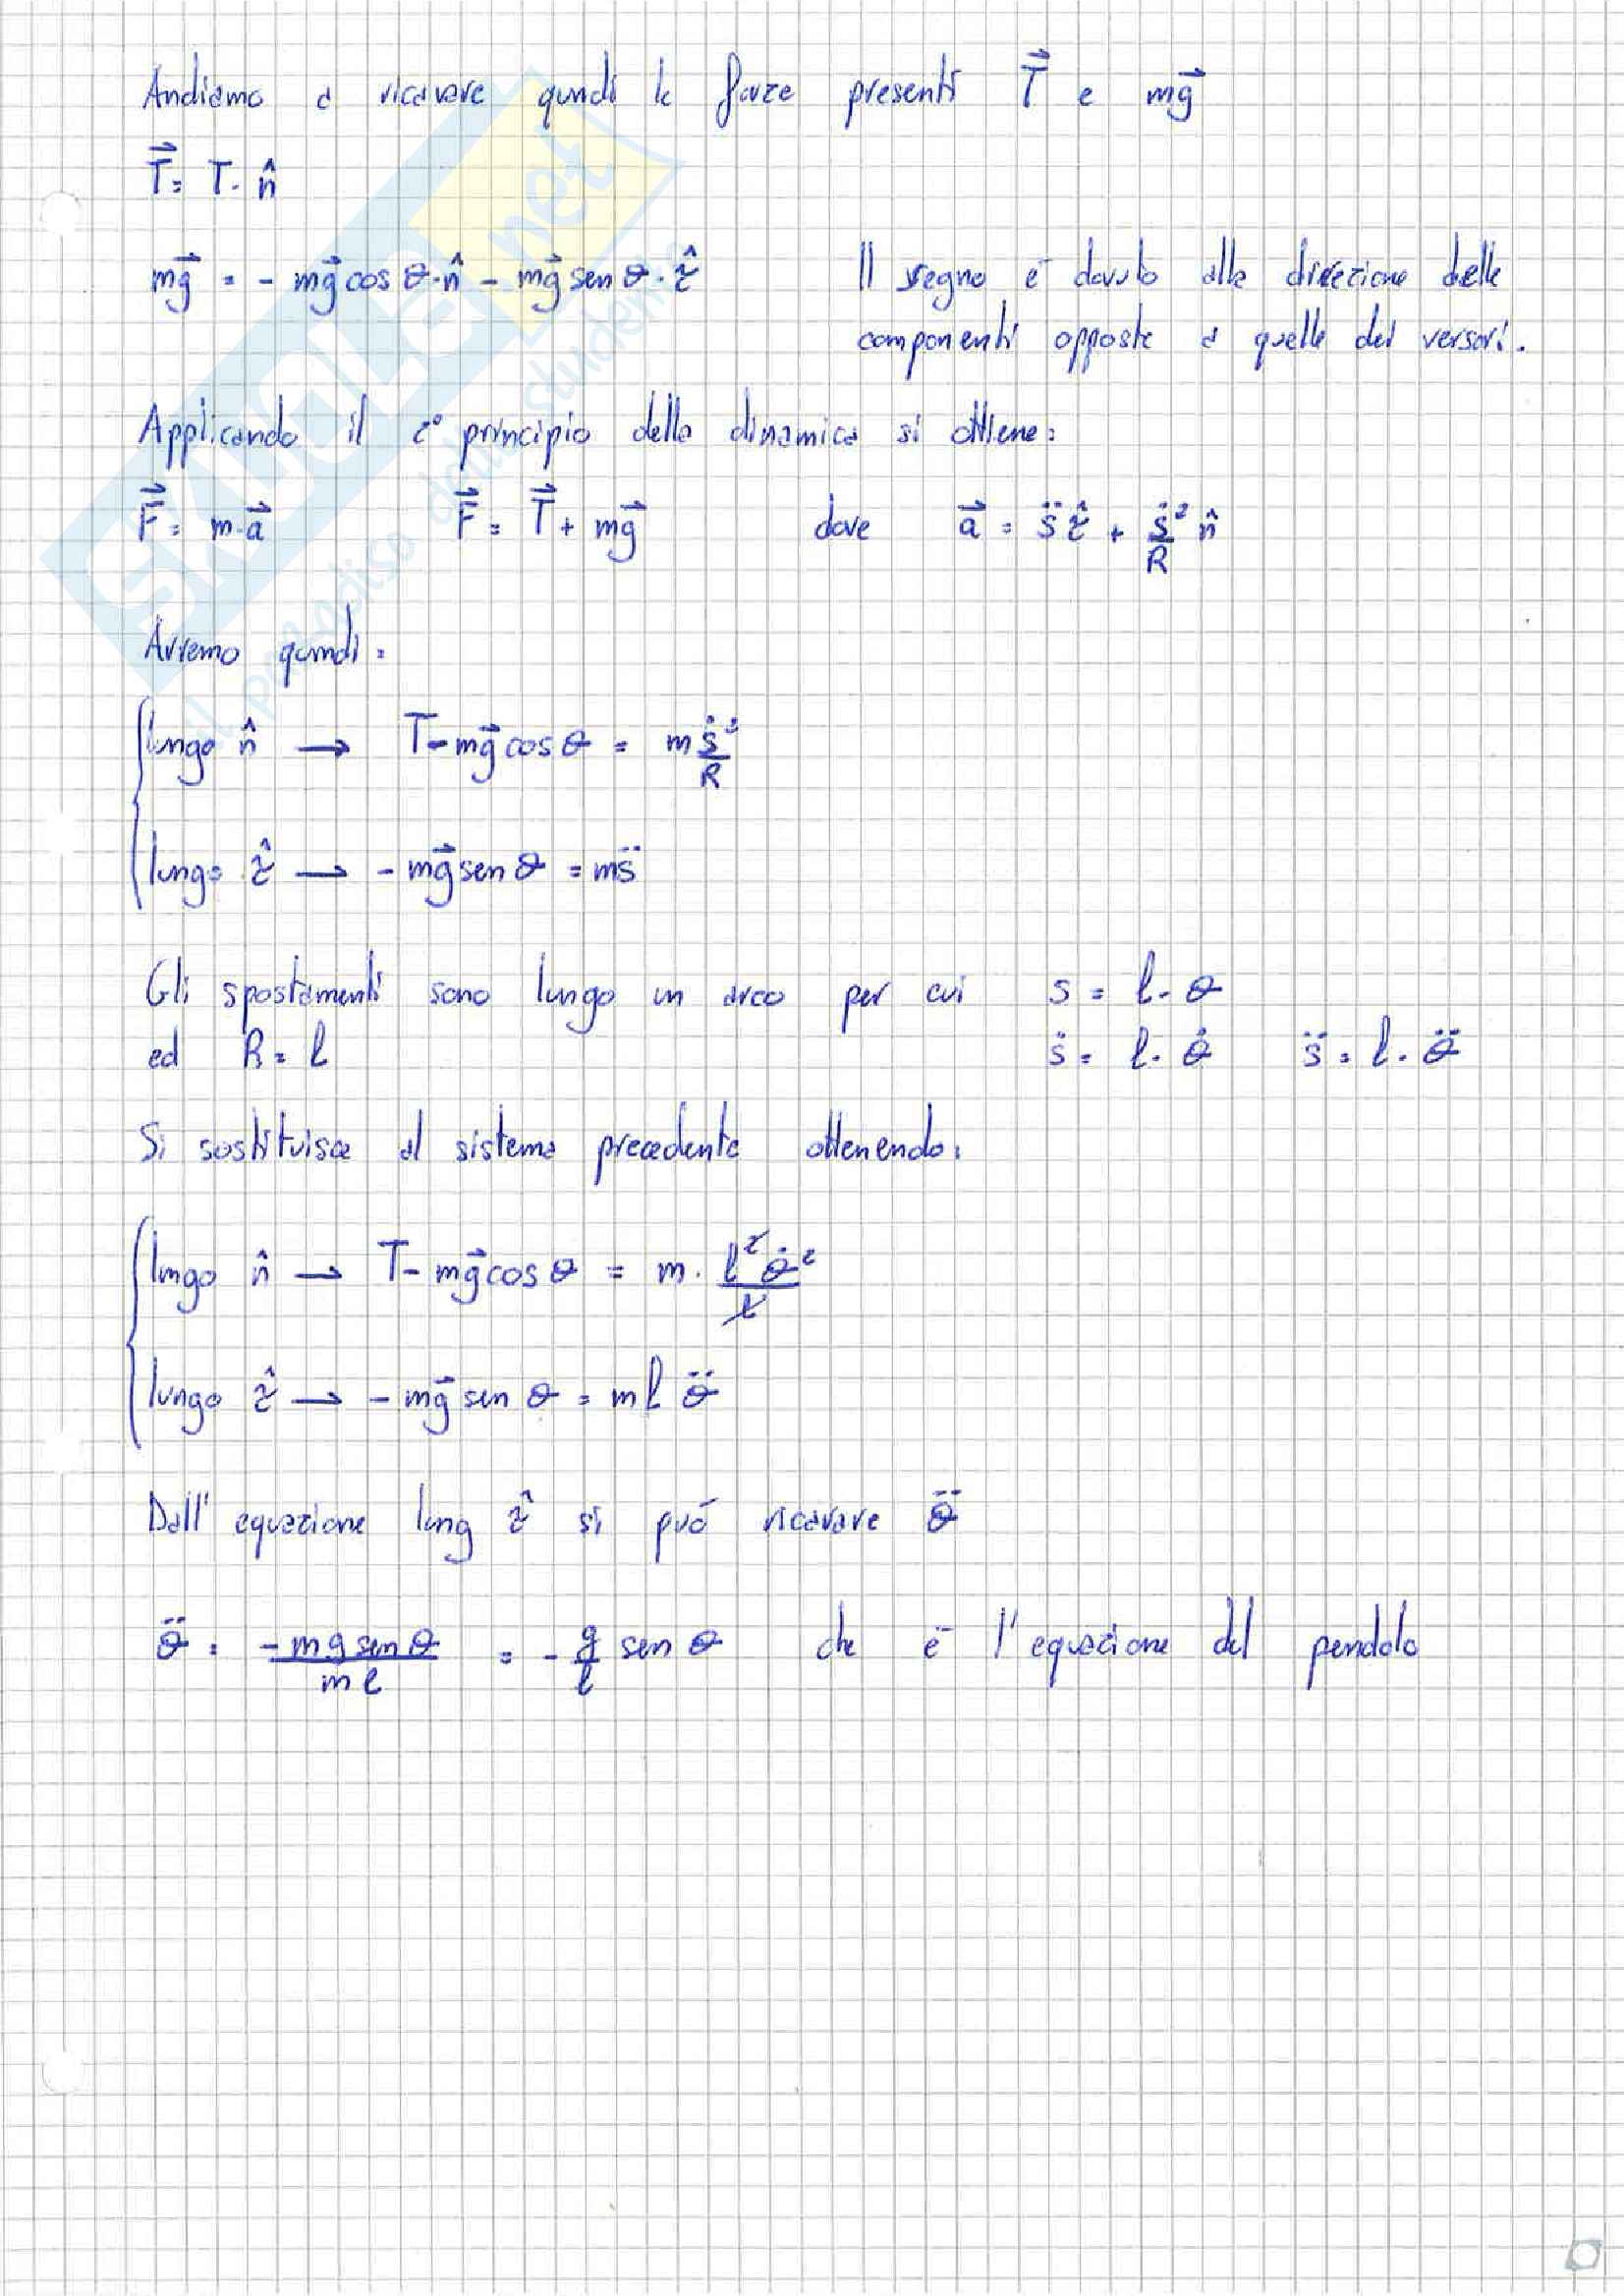 Andiamo a ricavare quindi le forze presenti T⃗ e mg⃗
T⃗ = T · n̂
mg⃗ = - mg⃗ cos θ · n̂ - mg⃗ sen θ · τ̂ Il segno è dovuto alla direzione delle
componenti opposte a quelle dei versori.
Applicando il 2° principio della dinamica si ottiene:
F⃗ = m · a⃗ F⃗ = T⃗ + mg⃗ dove a⃗ = s̈ τ̂ + ṡ²/R n̂
Avremo quindi:
lungo n̂ → T - mg⃗ cos θ = m ṡ²/R
lungo τ̂ → - mg⃗ sen θ = ms̈
Gli spostamenti sono lungo un arco per cui s = l · θ
ed R = l ṡ = l · θ̇ s̈ = l · θ̈
Si sostituisce al sistema precedente ottenendo:
lungo n̂ → T - mg⃗ cos θ = m · l² θ̇²/l
lungo τ̂ → - mg⃗ sen θ = m l θ̈
Dall' equazione lung τ̂ si può ricavare θ̈
θ̈ = -mg sen θ/ml = - g/l sen θ che è l'equazione del pendolo
SKUOLA.net
il paradiso dello studente